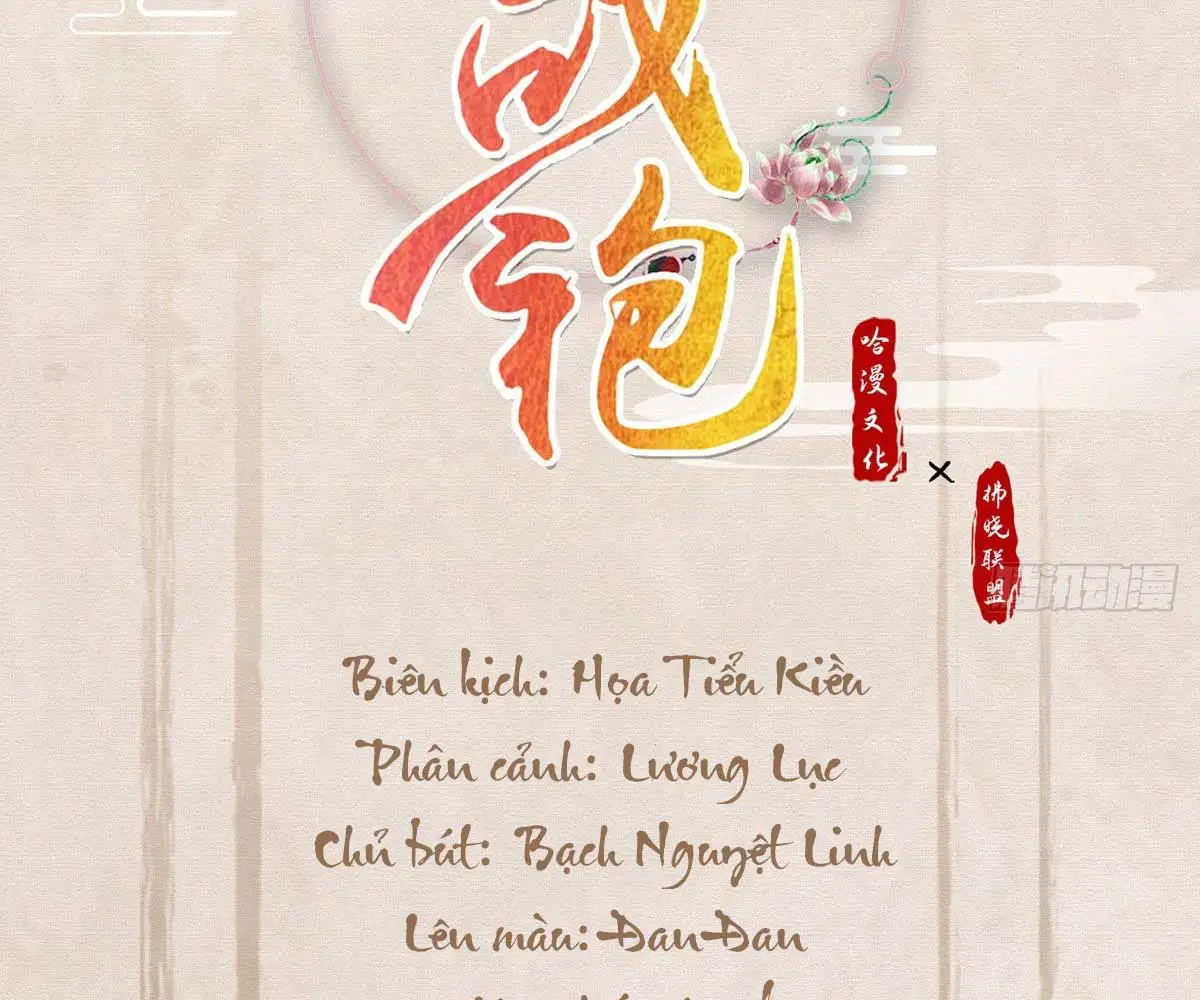 哈漫文化
×
拂晓联盟
腾讯动漫
Biên kịch: Họa Tiểu Kiều
Phân cảnh: Lương Lục
Chủ bút: Bạch Nguyệt Linh
Lên màu: ĐanĐan